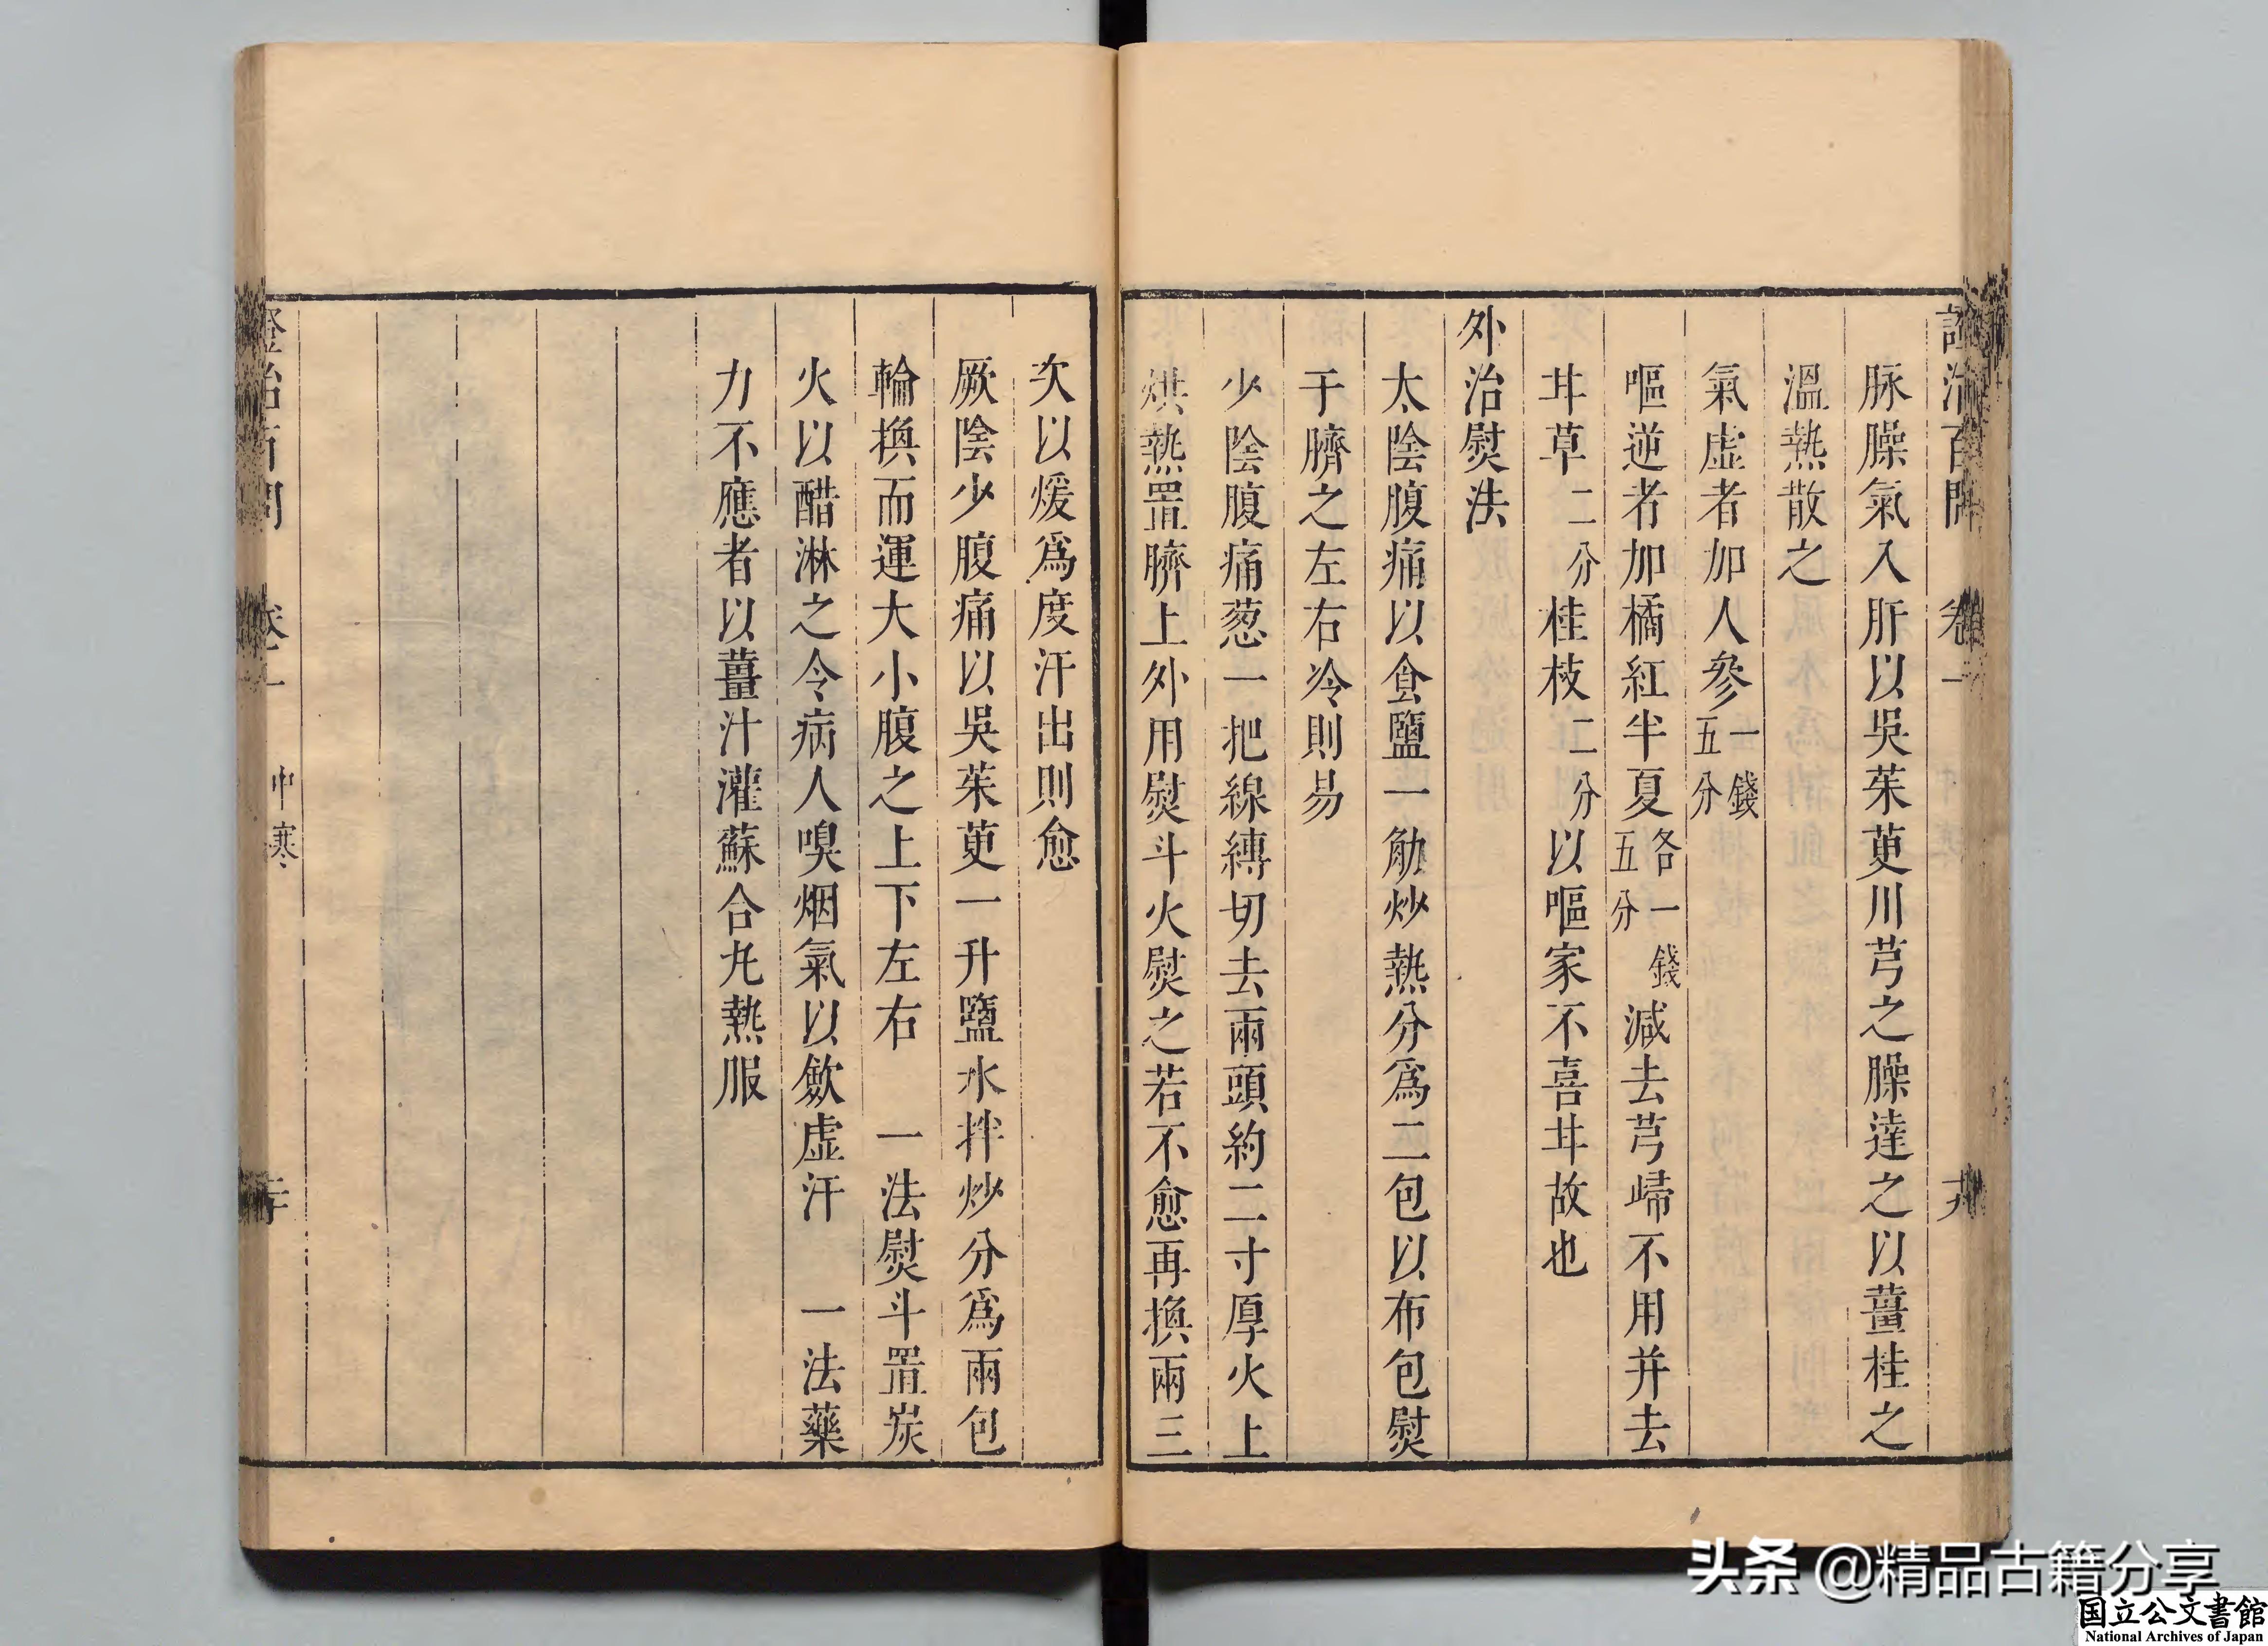 證治百問 卷一 十九
脉臊氣入肝以吳茱萸川芎之臊達之以薑桂之
溫熱散之
氣虛者加人參一錢五分
嘔逆者加橘紅半夏各一錢五分減去芎歸不用并去
甘草二分桂枝二分以嘔家不喜甘故也
外治熨法
太陰腹痛以食鹽一觔炒熱分爲二包以布包熨
于臍之左右冷則易
少陰腹痛葱一把線縛切去兩頭約二寸厚火上
烘熱置臍上外用熨斗火熨之若不愈再換兩三
次以煖爲度汗出則愈
厥陰少腹痛以吳茱萸一升鹽水拌炒分爲兩包
輪換而運大小腹之上下左右 一法熨斗置炭
火以醋淋之令病人嗅烟氣以歛虛汗 一法藥
力不應者以薑汁灌蘇合丸熱服
證治百問 卷一 中寒 二十
头条 @精品古籍分享
国立公文書館
National Archives of Japan